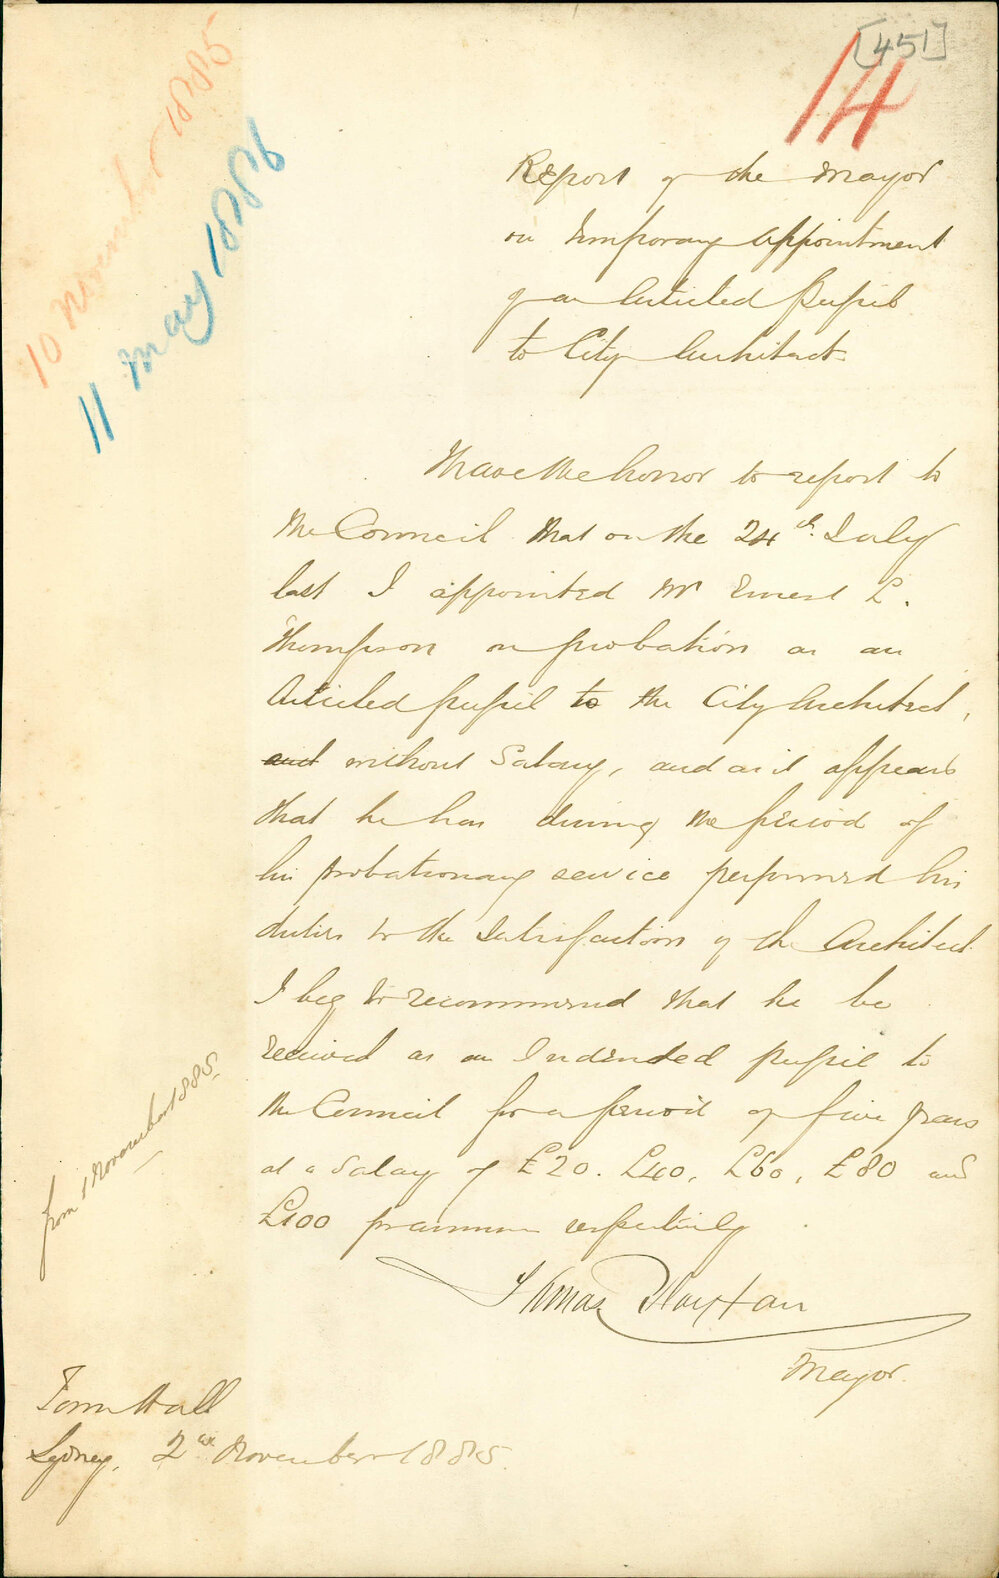 [451]
14
10 November 1885
11 May 1886
Report of the Mayor
on temporary appointment
of an Articled Pupil
to City Architect
I have the honor to report to
the Council that on the 24th. July
last I appointed Mr Ernest L.
Thompson on probation as an
Articled pupil to the City Architect,
and without Salary, and as it appears
that he has during the period of
his probationary service performed his
duties to the Satisfaction of the Architect
I beg to recommend that he be
received as an Indented pupil to
the Council for a period of five years
at a Salary of £20. £40, £60, £80 and
£100 per annum respectively
Thomas Playfair
Mayor.
from 1 November 1885
Town Hall
Sydney, 2nd November 1885.